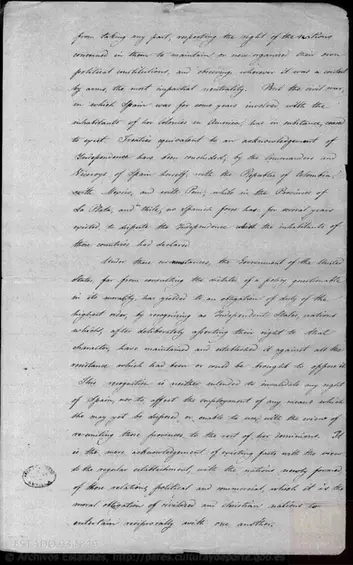 from taking any part, respecting the right of the nations
concerned in them to maintain or new organise their own
political constitutions, and observing, wherever it was a contest
by arms, the most impartial neutrality. But the civil war,
in which Spain was for some years involved with the
inhabitants of her Colonies in America, has in substance, ceased
to exist. Treaties equivalent to an acknowledgement of
Independence have been concluded, by the Commanders and
Viceroys of Spain herself, with the Republic of Colombia,
with Mexico, and with Peru; while in the Provinces of
La Plata, and Chile, no Spanish force has for several years
existed, to dispute the Independence which the inhabitants of
those countries had declared.
Under these circumstances, the Government of the United
States, far from consulting the dictates of a policy questionable
in its morality, has yielded to an obligation of duty of the
highest order, by recognizing as Independent States, nations
which, after deliberately asserting their right to that
character, have maintained and established it against all the
resistance which had been or could be brought to oppose it.
This recognition is neither intended to invalidate any right
of Spain, nor to affect the employment of any means which
she may yet be disposed, or enable to use, with the view of
re-uniting those provinces to the rest of her dominions. It
is the mere acknowledgement of existing facts with the view
to the regular establishment, with the nations newly formed,
of those relations, political and commercial, which it is the
moral obligation of civilized and Christian nations to
entertain reciprocally with one another.